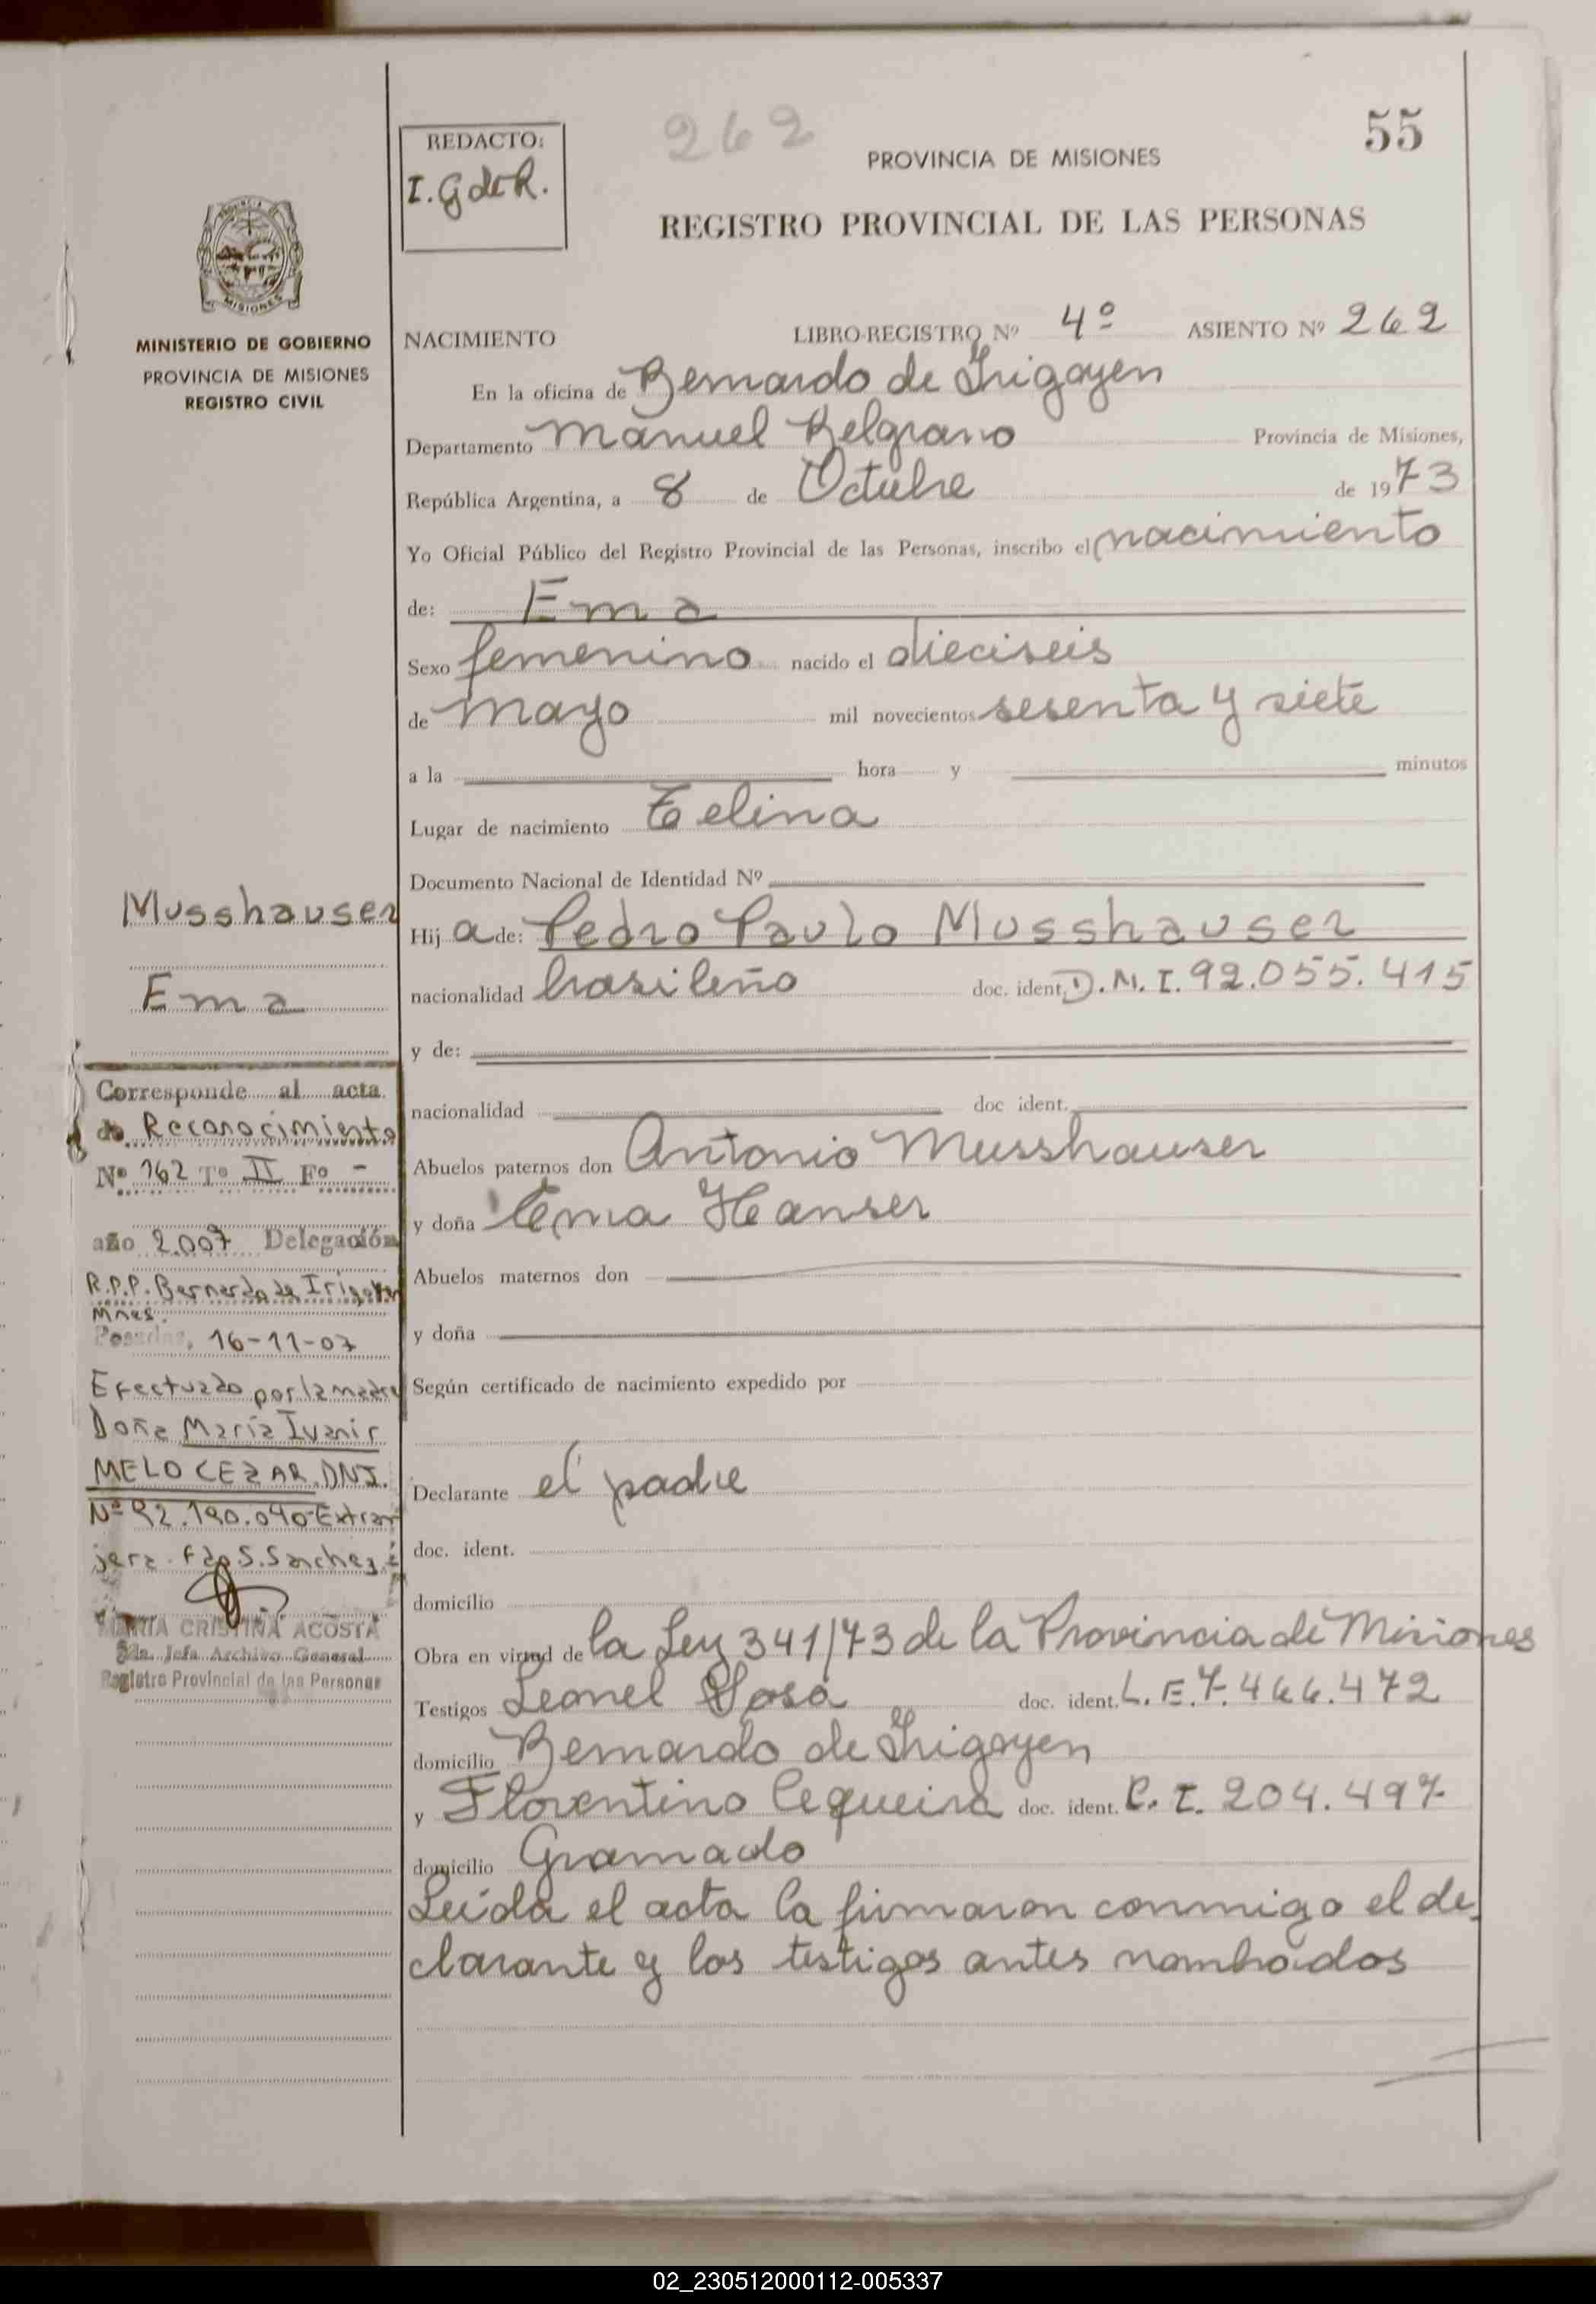 55
262
REDACTO:
I. G de R.
PROVINCIA DE MISIONES
REGISTRO PROVINCIAL DE LAS PERSONAS
MISIONES
MINISTERIO DE GOBIERNO
PROVINCIA DE MISIONES
REGISTRO CIVIL
NACIMIENTO LIBRO-REGISTRO Nº 4º ASIENTO Nº 262
En la oficina de Bernardo de Irigoyen
Departamento Manuel Belgrano Provincia de Misiones,
República Argentina, a 8 de Octubre de 1973
Yo Oficial Público del Registro Provincial de las Personas, inscribo el nacimiento
de: Ema
Sexo femenino nacido el dieciseis
de mayo mil novecientos sesenta y siete
a la hora y minutos
Lugar de nacimiento
Documento Nacional de Identidad Nº
Hij a de: Pedro Paulo Musshauser
nacionalidad brasileño doc. ident. D.N.I. 92.055.415
y de:
nacionalidad doc ident.
Abuelos paternos don Antonio Musshauser
y doña Ema Hanser
Abuelos maternos don
y doña
Según certificado de nacimiento expedido por
Declarante el padre
doc. ident.
domicilio
Obra en virtud de la Ley 341/73 de la Provincia de Misiones
Testigos Leonel Sosa doc. ident. L.E. 7.466.472
domicilio Bernardo de Irigoyen
y Florentino Cequeira doc. ident. C.I. 204.497
domicilio Gramado
Leída el acta la firmaron conmigo el de-
clarante y los testigos antes nombrados
Musshauser
Ema
Corresponde al acta
de Reconocimiento
Nº 162 Tº II Fº -
año 2.007 Delegación
R.P.P. Bernardo de Irigoyen
Mnes.
Posadas, 16-11-07
Efectuado por la madre
Doña María Ivanir
MELO CEZAR. DNI.
Nº 92.190.040-Extran
jera. Fdo S. Sanchez.
MARIA CRISTINA ACOSTA
Jefa Archivo General
Registro Provincial de las Personas
02_230512000112-005337